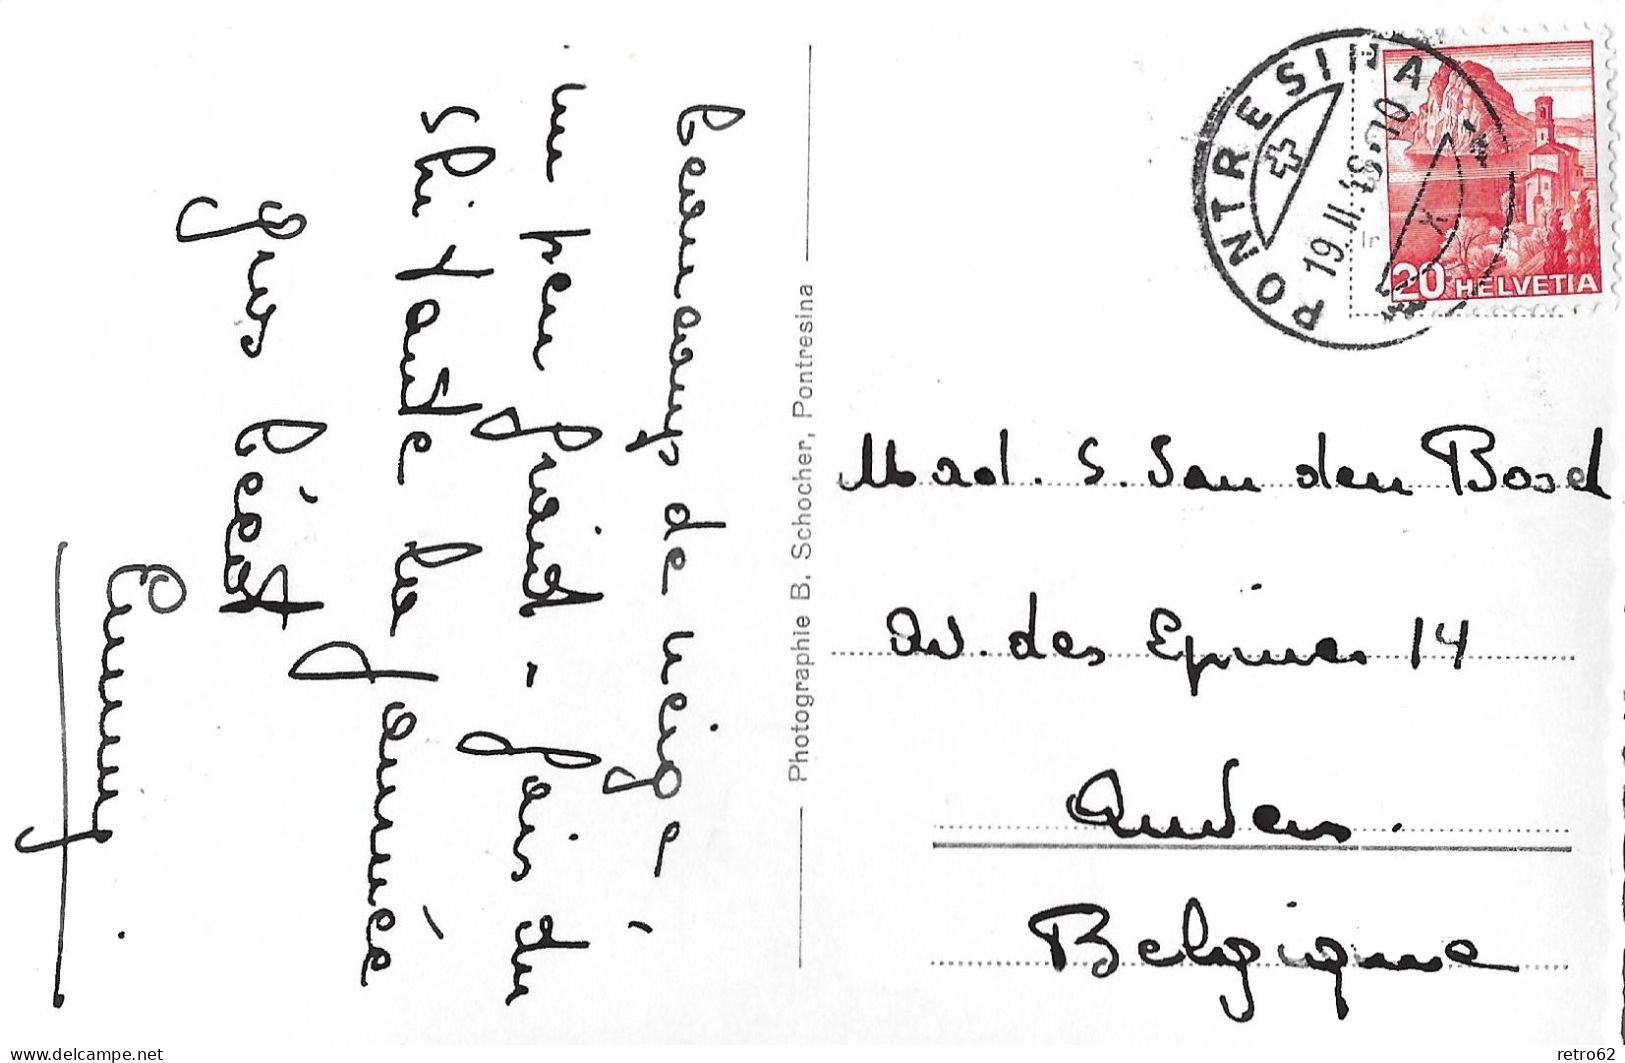 Beaucoup de neige -
un peu froid - fais du
ski toute la journée
Gros bécot
Emmy.
Photographie B. Schocher, Pontresina
PONTRESINA
19.II.
20 HELVETIA
Mad. S. Van den Bosch
Av. des Epines 14
Anvers.
Belgique
delcampe.net
retro62